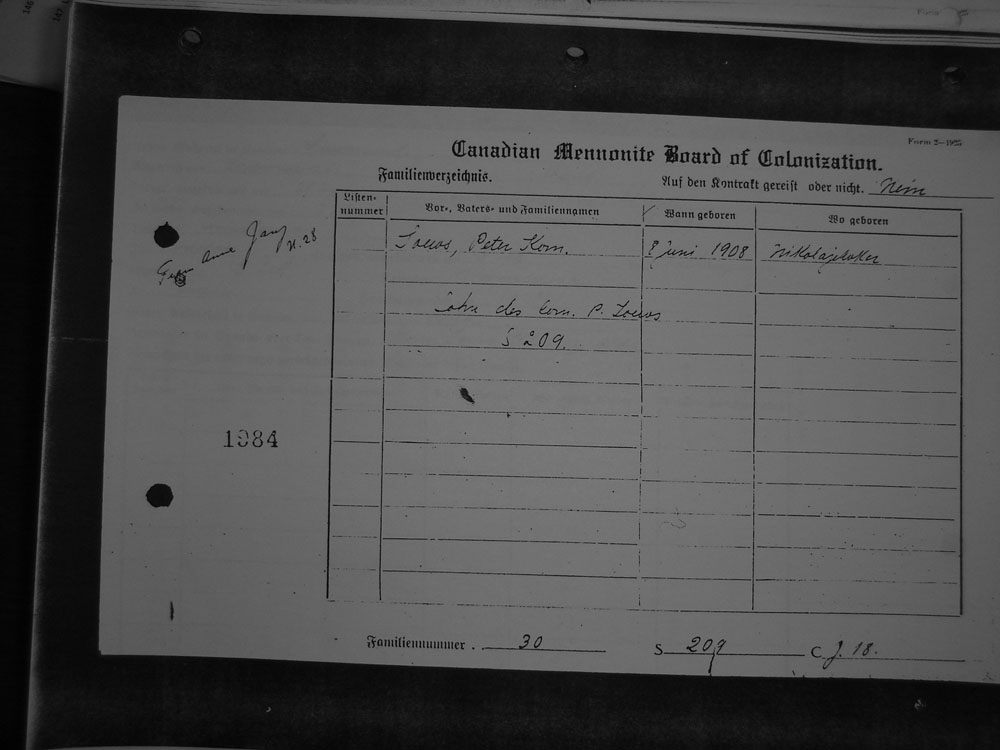 Form 2—1925
Canadian Mennonite Board of Colonization.
Familienverzeichnis.
Auf den Kontrakt gereist oder nicht.
Listen-nummer
Vor-, Vaters- und Familiennamen
Wann geboren
Wo geboren
Loews, Peter Korn.
8 Juni 1908
Nikolajewka
Sohn des Corn. P. Loews
S 209.
1984
Familiennummer. 30 S 209 C J. 18.
146
147